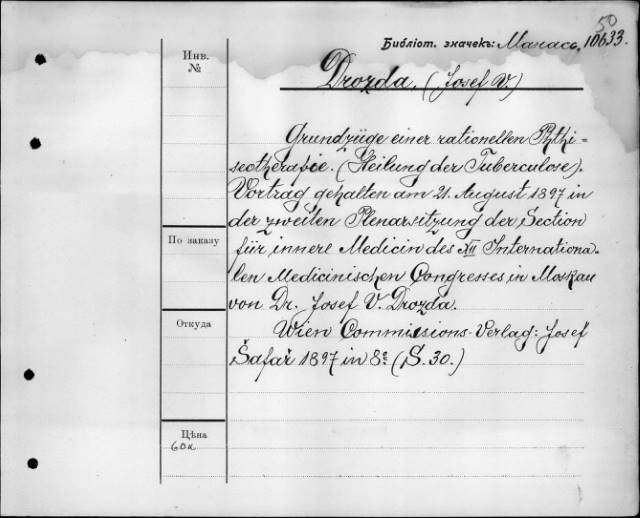 50
Библіот. значекъ: Манасс, 10633.
Инв.
№
Drozda. (Josef V.)
Grundzüge einer rationellen Phthi-
seotherapie. (Heilung der Tuberculose).
Vortrag gehalten am 21. August 1897 in
der zweiten Plenarsitzung der Section
für innere Medicin des XII Internationa-
len Medicinischen Congresses in Moskau
von Dr. Josef V. Drozda.
Wien Commissions-Verlag: Josef
Šafař 1897 in 8º (S. 30.)
По заказу
Откуда
Цѣна
60к